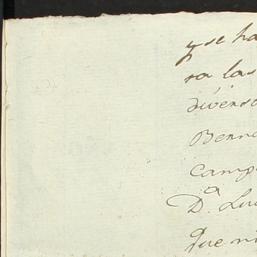 y se ha
ra las
divers
Berna
camp
Dª Lu
que ni